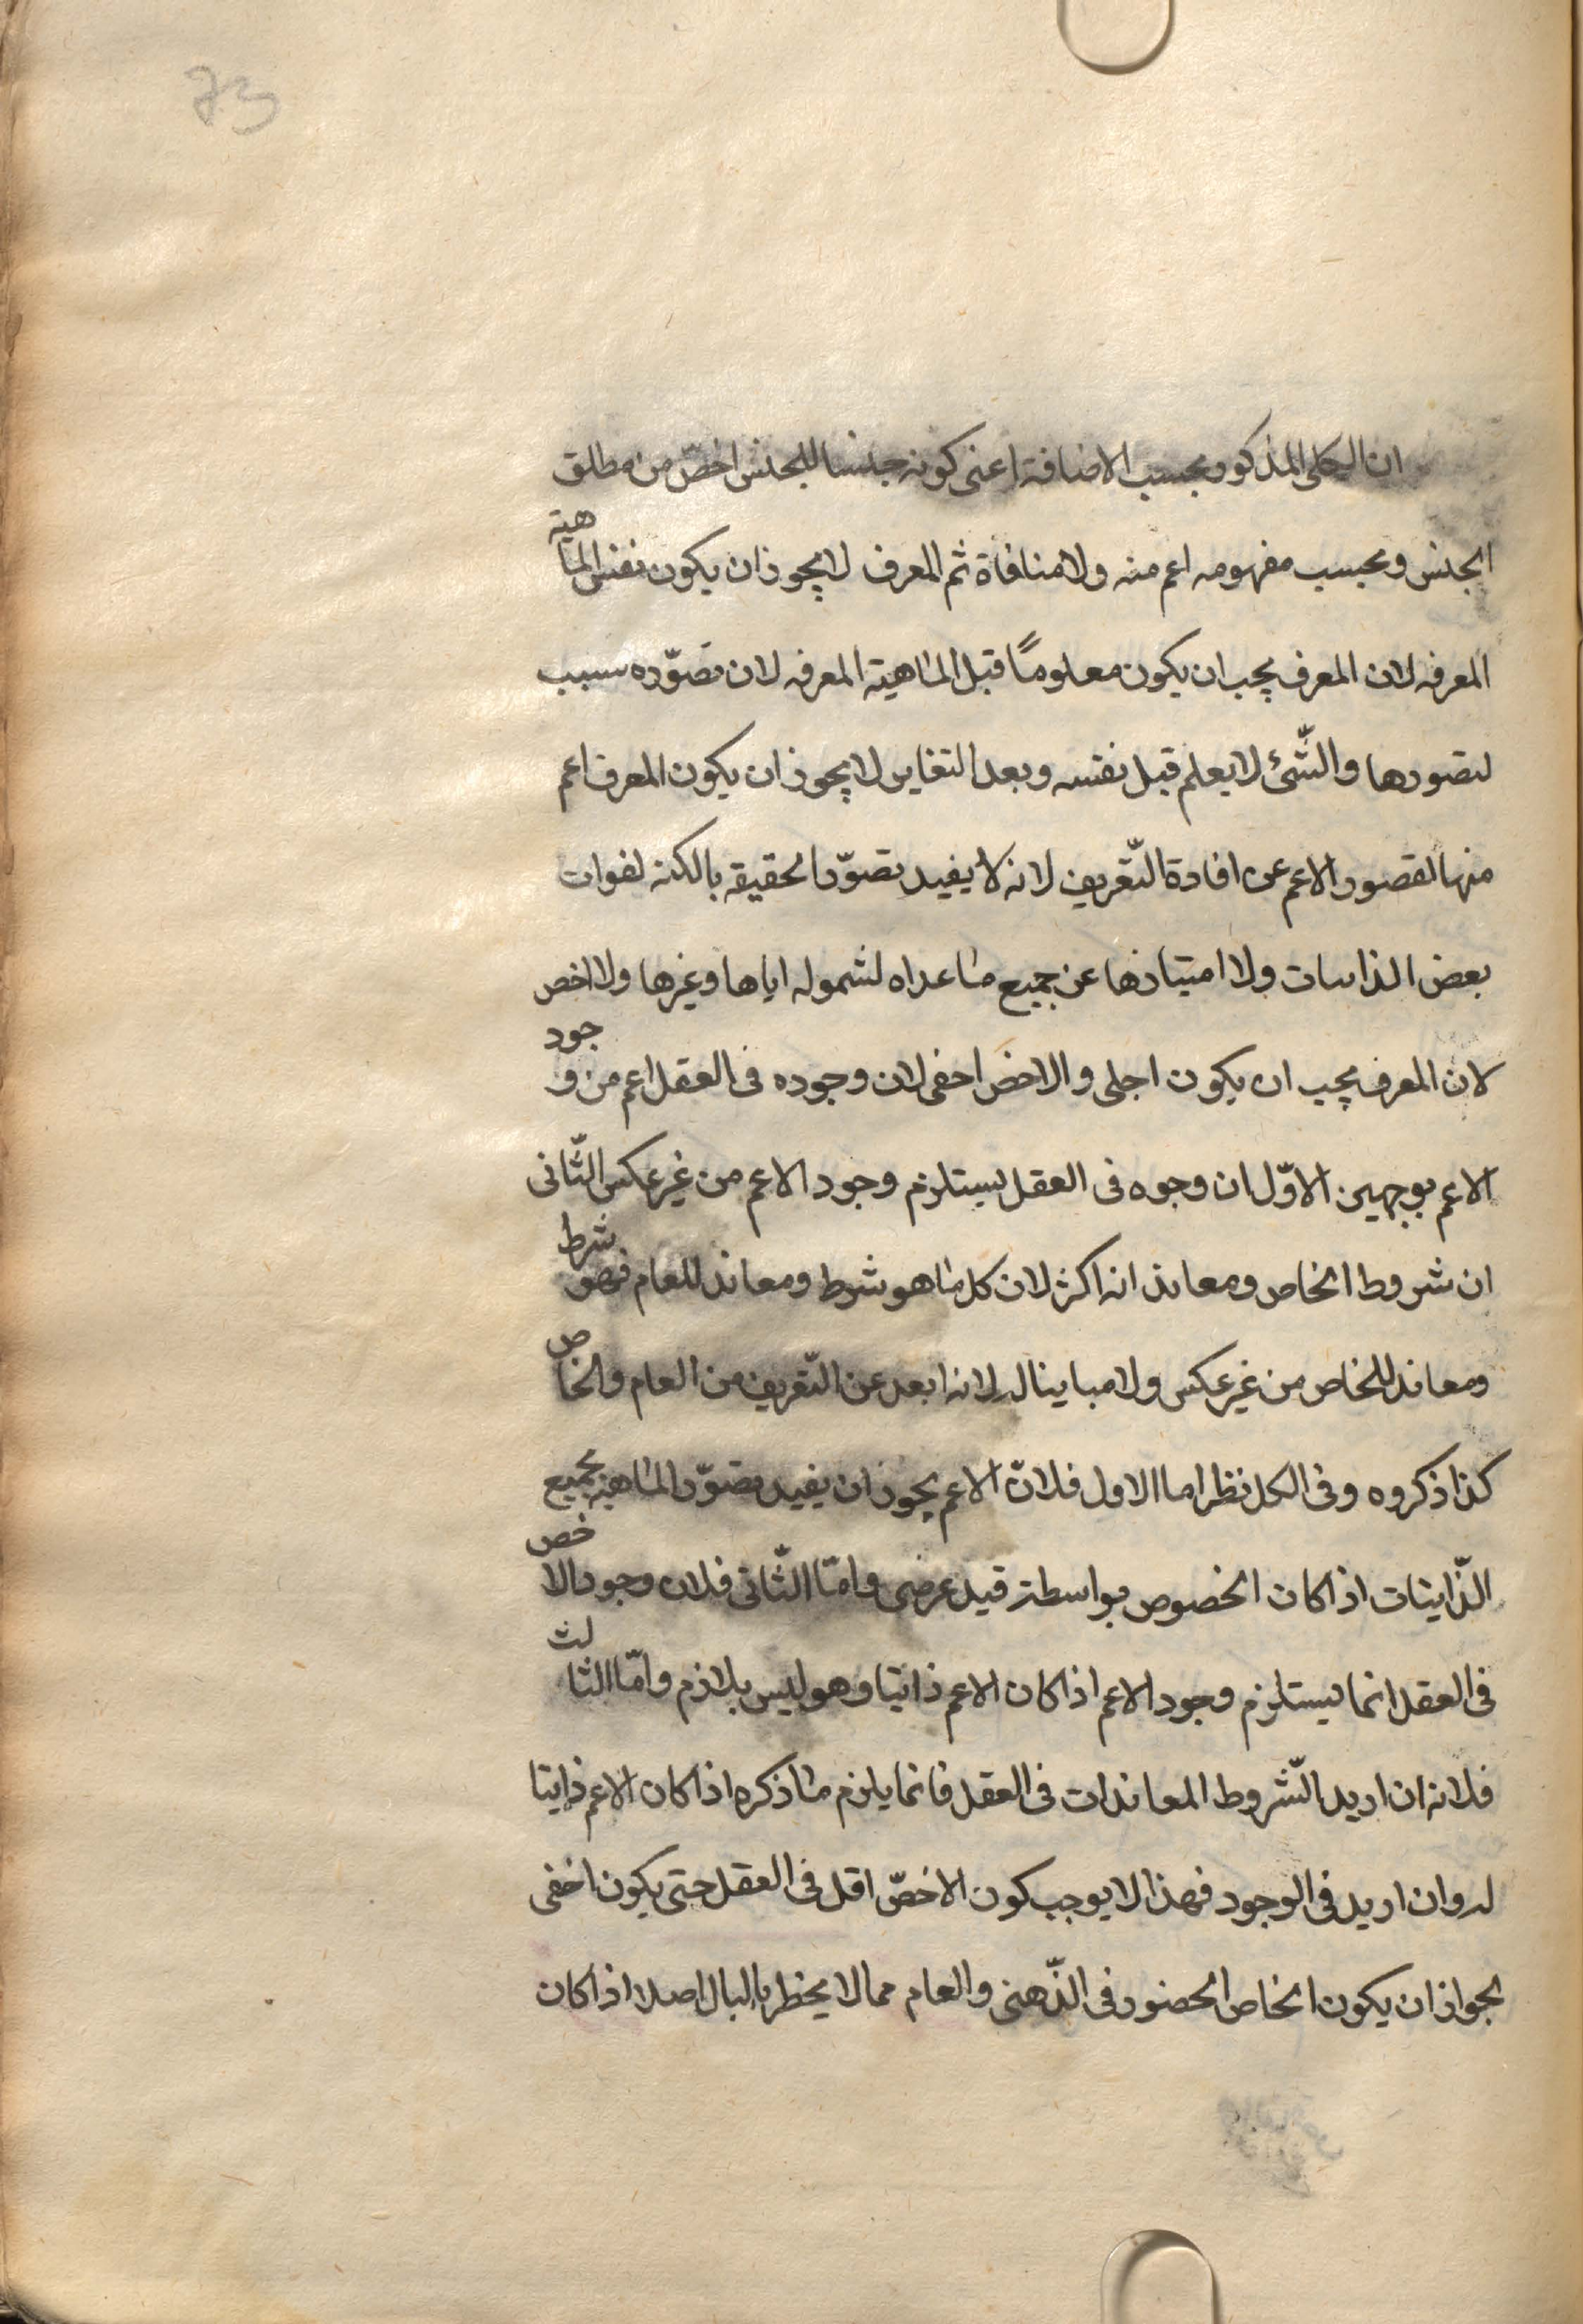 73
ان الكلى المذكور بحسب الاضافة اعنى كونه جنسا للجنس اخصّ من مطلق
الجنس وبحسب مفهومه اعم منه ولا منافاة ثم المعرف لا يجوز ان يكون نفس الماهية
المعرفه لان المعرف يجب ان يكون معلومًا قبل الماهية المعرفه لان تصوّره سبب
لتصورها والشّئ لا يعلم قبل نفسه وبعد التغاير لا يجوز ان يكون المعرف اعم
منها لقصور الاعم عن افادة التّعريف لانه لا يفيد تصوّر الحقيقه بالكنه لفوات
بعض الذاتيات ولا امتيازها عن جميع ما عداه لشموله اياها وغيرها ولا اخص
لان المعرف يجب ان يكون اجلى والاخص اخفى لان وجوده فى العقل اعم من وجود
الاعم بوجهين الاوّل ان وجوه فى العقل يستلزم وجود الاعم من غير عكس الثّانى
ان شروط الخاص ومعاند انه اكثر لان كل ما هو شرط ومعاند للعام فهو شرط
ومعاند للخاص من غير عكس ولا مباينا له لانه ابعد عن التّعريف من العام والخاص
كذا ذكروه وفى الكل نظر اما الاول فلانّ الاعم يجوز ان يفيد تصوّر الماهية بجميع
الذّاتيات اذا كان الخصوص بواسطة قيد عرضى وامّا الثّانى فلان وجود الاخص
فى العقل انما يستلزم وجود الاعم اذا كان الاعم ذاتيا وهو ليس بلازم وامّا الثالث
فلانه ان اريد الشّروط المعاندات فى العقل فانما يلزم ما ذكره اذا كان الاعم ذاتيا
له وان اريد فى الوجود فهذا لا يوجب كون الاخصّ اقل فى العقل حتى يكون اخفى
لجواز ان يكون الخاص الحضور فى الذّهنى والعام مما لا يخطر بالبال اصلا اذا كان